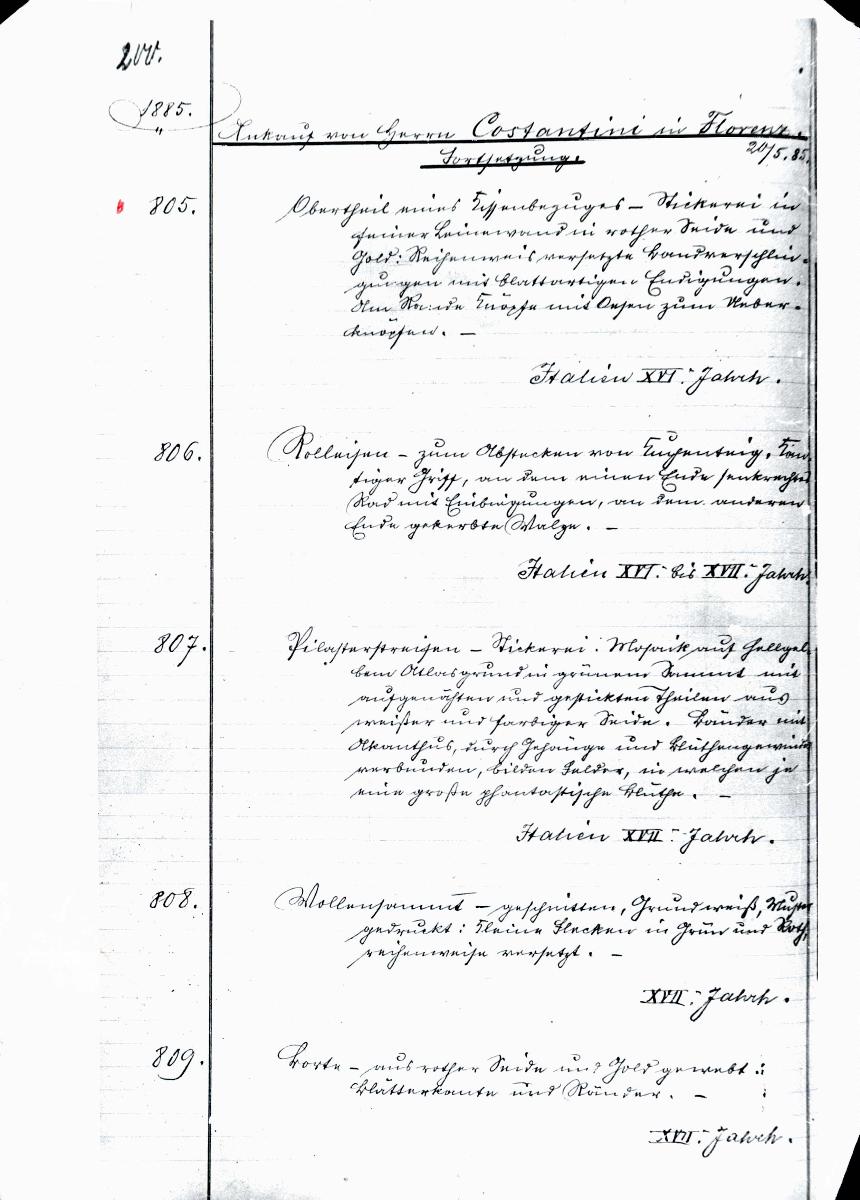 200.
1885.
"
Ankauf von Herrn Costantini in Florenz.
20/5.85.
Fortsetzung.
805. Obertheil eines Kissenbezuges – Stickerei in
feiner Leinewand in rother Seide und
Gold: Reihenweis versetzte Bandverschlin-
gungen mit blattartigen Endigungen.
Am Rande Knöpfe mit Oesen zum Ueber-
knöpfen. –
Italien XVI. Jahrh.
806. Rolleisen – zum Abstecken von Kuchenteig. Kan-
tiger Griff, an dem einen Ende senkrechtes
Rad mit Einbiegungen, an dem anderen
Ende gekerbte Walze. –
Italien XVI. bis XVII. Jahrh.
807. Pilasterstreifen – Stickerei: Mosaik auf hellgel-
bem Atlasgrund in grünem Sammt mit
aufgenähten und gestickten Theilen aus
weißer und farbiger Seide. Bänder mit
Akanthus, durch Gehänge und Blüthengewinde
verbunden, bilden Felder, in welchen je
eine große phantastische Blüthe. –
Italien XVII. Jahrh.
808. Wollensammt – geschnitten, Grund weiß, Muster
gedruckt: kleine Flecken in Grün und Roth,
reihenweise versetzt. –
XVII. Jahrh.
809. Borte – aus rother Seide und Gold gewebt:
Blätterkante und Ränder. –
XVII. Jahrh.